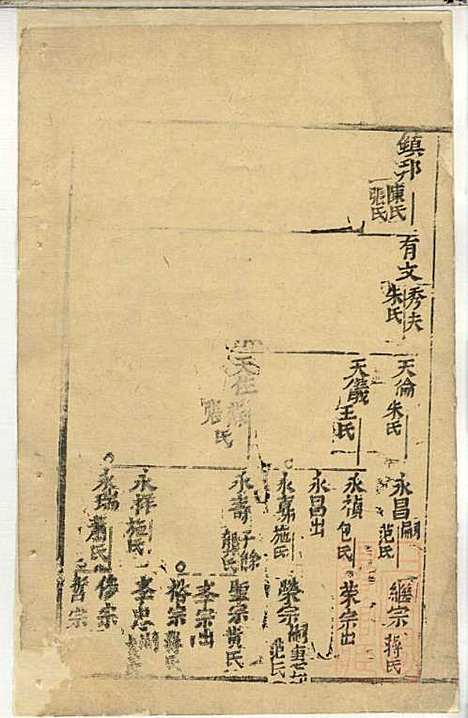 鎮邦 陳氏 張氏
有文 秀夫 朱氏
天倫 朱氏
天儀 王氏
天佐 張氏
永昌 嗣 范氏
永禎 包氏
永昌出
永弟 施氏
永壽 子餘 龔氏
永祥 施氏
永瑞 蕭氏
繼宗 蔣氏
榮宗出
榮宗 嗣 范氏
聖宗 黃氏
孝宗出
裕宗
孝忠
修宗
哲宗